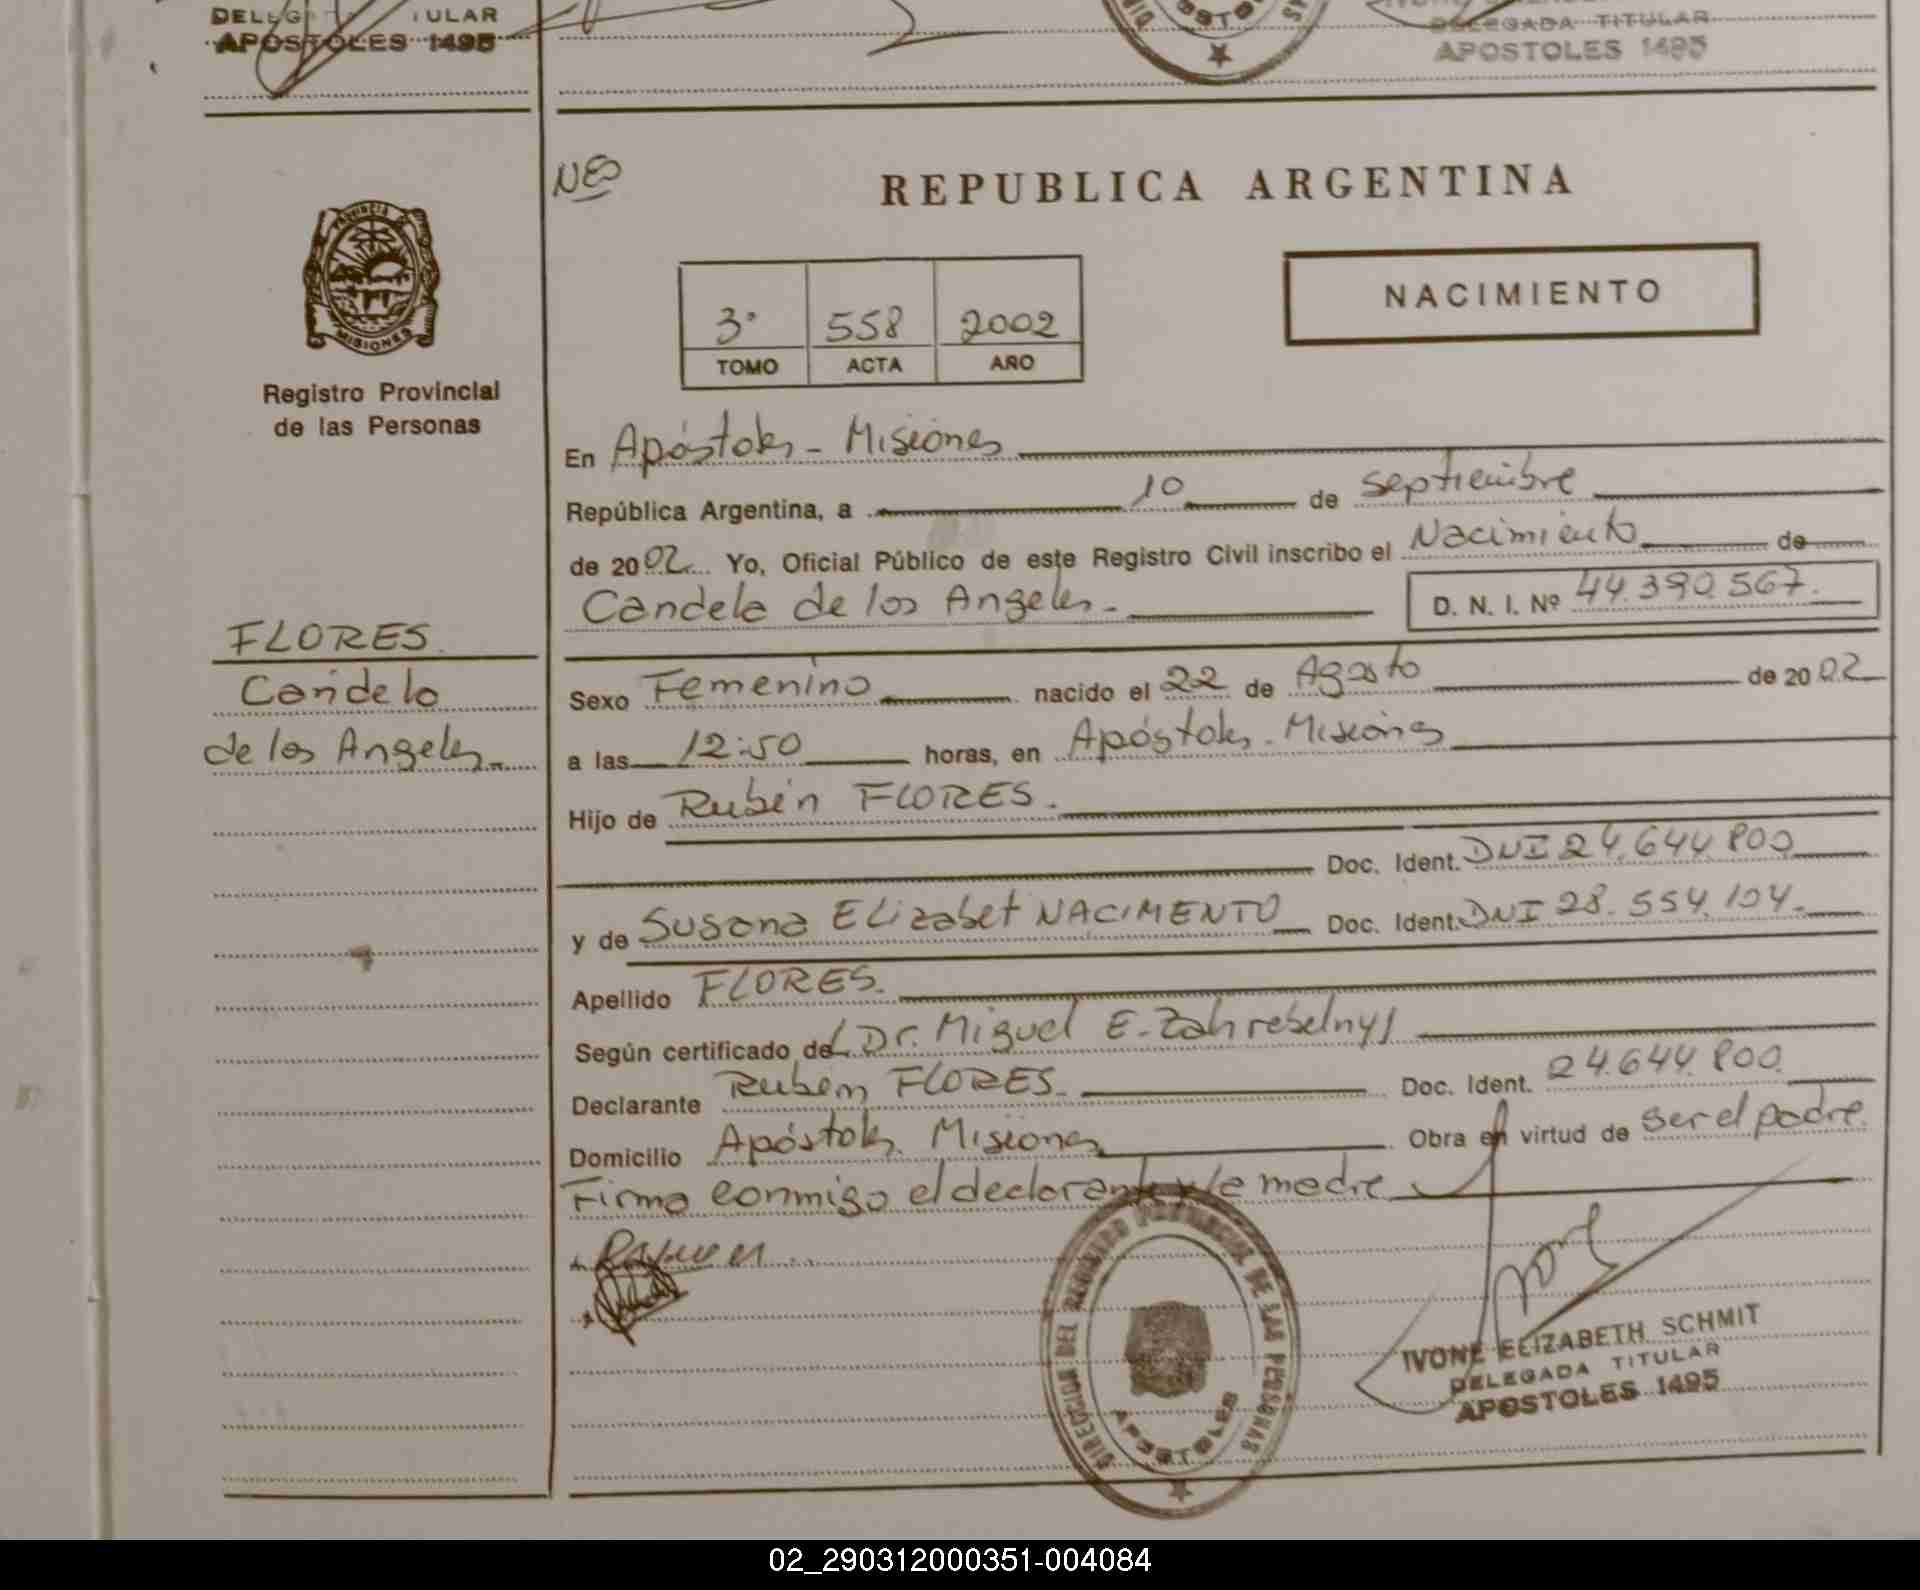 DELEG ULAR
APOSTOLES 1495
DELEGADA TITULAR
APOSTOLES 1495
NES
REPUBLICA ARGENTINA
PROVINCIA DE MISIONES
NACIMIENTO
3° 558 2002
TOMO ACTA AÑO
Registro Provincial
de las Personas
En Apóstoles - Misiones
República Argentina, a 10 de septiembre
de 2002 Yo, Oficial Público de este Registro Civil inscribo el Nacimiento de
Candela de los Angeles.- D. N. I. Nº 44.390.567.
FLORES.
Candela
de los Angeles.-
Sexo Femenino nacido el 22 de Agosto de 2002
a las 12:50 horas, en Apóstoles - Misiones
Hijo de Rubén FLORES.
Doc. Ident. DNI 24.644.800
y de Susana Elizabet NACIMENTO Doc. Ident. DNI 28.554.104.
Apellido FLORES.
Según certificado de (Dr. Miguel E. Zahrebelny)
Declarante Rubén FLORES. Doc. Ident. 24.644.800.
Domicilio Apóstoles. Misiones Obra en virtud de ser el padre.
Firma conmigo el declarante y la madre
DIRECCION DEL REGISTRO PROVINCIAL DE LAS PERSONAS
APOSTOLES
IVONE ELIZABETH SCHMIT
DELEGADA TITULAR
APOSTOLES 1495
02_290312000351-004084